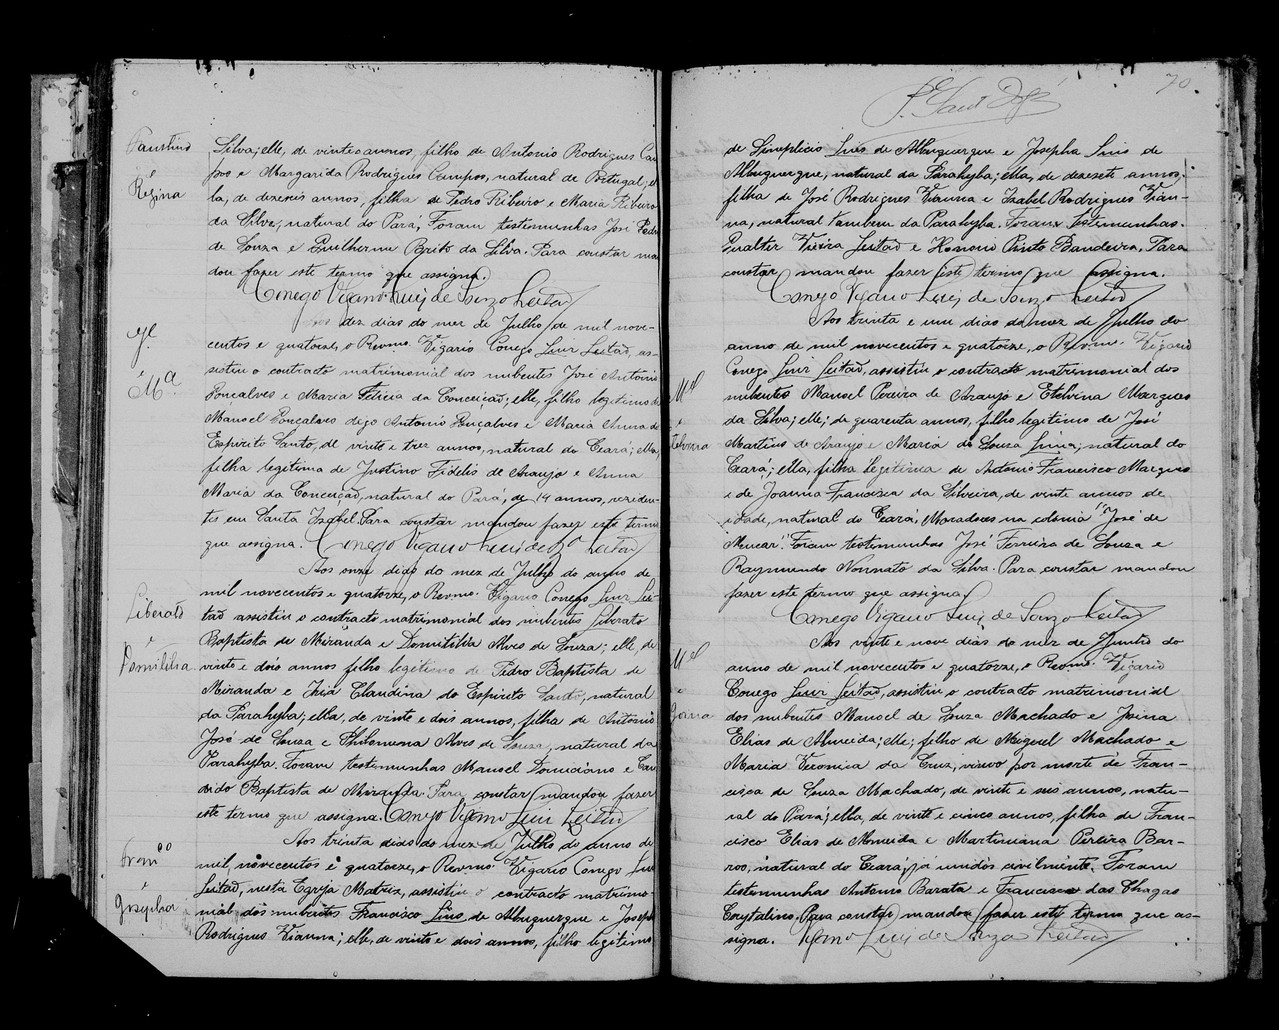 Faustino
e
Regina
Silva; elle, de vinte annos, filho de Antonio Rodrigues Cam
pos e Margarida Rodrigues Campos, natural de Portugal; el
la, de dezeseis annos, filha de Pedro Ribeiro e Maria Ribeiro
da Silva, natural do Pará. Foram testemunhas José Pedro
de Souza e Guilherme Brito da Silva. Para constar man
dou fazer este termo que assigna.
Conego Vigario Luiz de Souza Leitão
Jé
e
Mª
Aos dez dias do mez de Julho de mil nove-
centos e quatorze, o Revmo. Vigario Conego Luiz Leitão, as-
sistiu o contracto matrimonial dos nubentes José Antonio
Gonçalves e Maria Felicia da Conceição; elle, filho legitimo de
Manoel Gonçalves digo Antonio Gonçalves e Maria Anna do
Espirito Santo, de vinte e trez annos, natural do Ceará; ella,
filha legitima de Justino Fidelis de Araujo e Anna
Maria da Conceição, natural do Pará, de 14 annos, reziden-
tes em Santa Izabel. Para constar mandou fazer este termo
que assigna. Conego Vigario Luiz de Sª Leitão
Liberato
e
Domitilia
Aos onze dias do mez de Julho do anno de
mil novecentos e quatorze, o Revmo. Vigario Conego Luiz Lei-
tão assistiu o contracto matrimonial dos nubentes Liberato
Baptista de Miranda e Domitilia Alves de Souza; elle, de
vinte e dois annos filho legitimo de Pedro Baptista de
Miranda e Iria Claudina do Espirito Santo, natural
da Parahyba; ella, de vinte e dois annos, filha de Antonio
José de Souza e Philomena Alves de Souza, natural da
Parahyba. Foram testemunhas Manoel Domiciano e Can
dido Baptista de Miranda. Para constar mandou fazer
este termo que assigna. Conego Vigario Luiz Leitão
Franco
e
Josepha
Aos trinta dias do mez de Julho do anno de
mil novecentos e quatorze, o Revmo. Vigario Conego Luiz
Leitão, nesta Egreja Matriz, assistiu o contracto matrimo
nial dos nubentes Francisco Lins de Albuquerque e Josepha
Rodrigues Vianna; elle, de vinte e dois annos, filho legitimo
70.
de Simplicio Lins de Albuquerque e Josepha Lins de
Albuquerque, natural da Parahyba; ella, de dezesete annos,
filha de José Rodrigues Vianna e Izabel Rodrigues Vian-
na, natural tambem da Parahyba. Foram testemunhas
Gualter Vieira Leitão e Honorio Pinto Bandeira. Para
constar mandou fazer este termo que assigna.
Conego Vigario Luiz de Souza Leitão
Mel
e
Etelvina
Aos trinta e um dias do mez de Julho do
anno de mil novecentos e quatorze, o Revmo. Vigario
Conego Luiz Leitão, assistiu o contracto matrimonial dos
nubentes Manoel Pereira de Araujo e Etelvina Marques
da Silva; elle, de quarenta annos, filho legitimo de José
Martins de Araujo e Maria de Souza Lima; natural do
Ceará; ella, filha legitima de Antonio Francisco Marques
e de Joanna Francisca da Silveira, de vinte annos de
idade, natural do Ceará; Moradores na colonia "José de
Alencar". Foram testemunhas José Ferreira de Souza e
Raymundo Nonnato da Silva. Para constar mandou
fazer este termo que assigna.
Conego Vigario Luiz de Souza Leitão
Mel
e
Aos vinte e nove dias do mez de Junho do
anno de mil novecentos e quatorze, o Revmo. Vigario
Conego Luiz Leitão, assistiu o contracto matrimonial
dos nubentes Manoel de Souza Machado e Joina
Elias de Almeida; elle; filho de Miguel Machado e
Maria Veronica da Cruz, viuvo por morte de Fran-
cisca de Souza Machado, de vinte e seis annos, natu-
ral do Pará; ella, de vinte e cinco annos, filha de Fran-
cisco Elias de Almeida e Martiniana Pereira Bar-
ros, natural do Ceará, já unidos civilmente. Foram
testemunhas Antonio Barata e Francisco das Chagas
Corytalino. Para constar mandou fazer este termo que as-
signa. Vigario Luiz de Souza Leitão